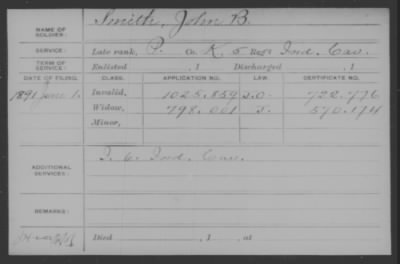 NAME OF SOLDIER: Smith, John B.
SERVICE: Late rank, P. Co. K, 5 Reg't Ind. Cav.
TERM OF SERVICE: Enlisted , 1 Discharged , 1
DATE OF FILING. CLASS. APPLICATION NO. LAW. CERTIFICATE NO.
1891 June 1. Invalid, 1025.859 J.O. 722.776
Widow, 798.001 S. 570.174
Minor,
ADDITIONAL SERVICES: I. 6. Ind. Cav.
REMARKS:
Died , 1 , at